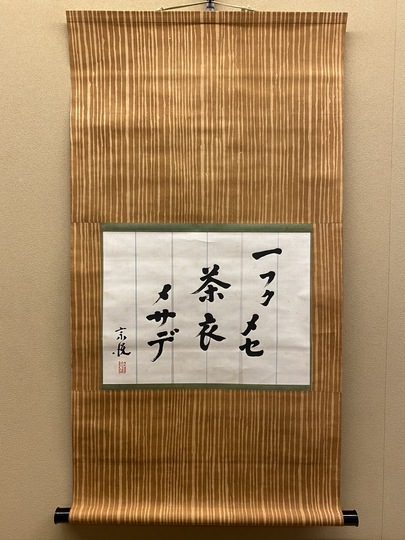 一フクメセ
茶衣
メサデ